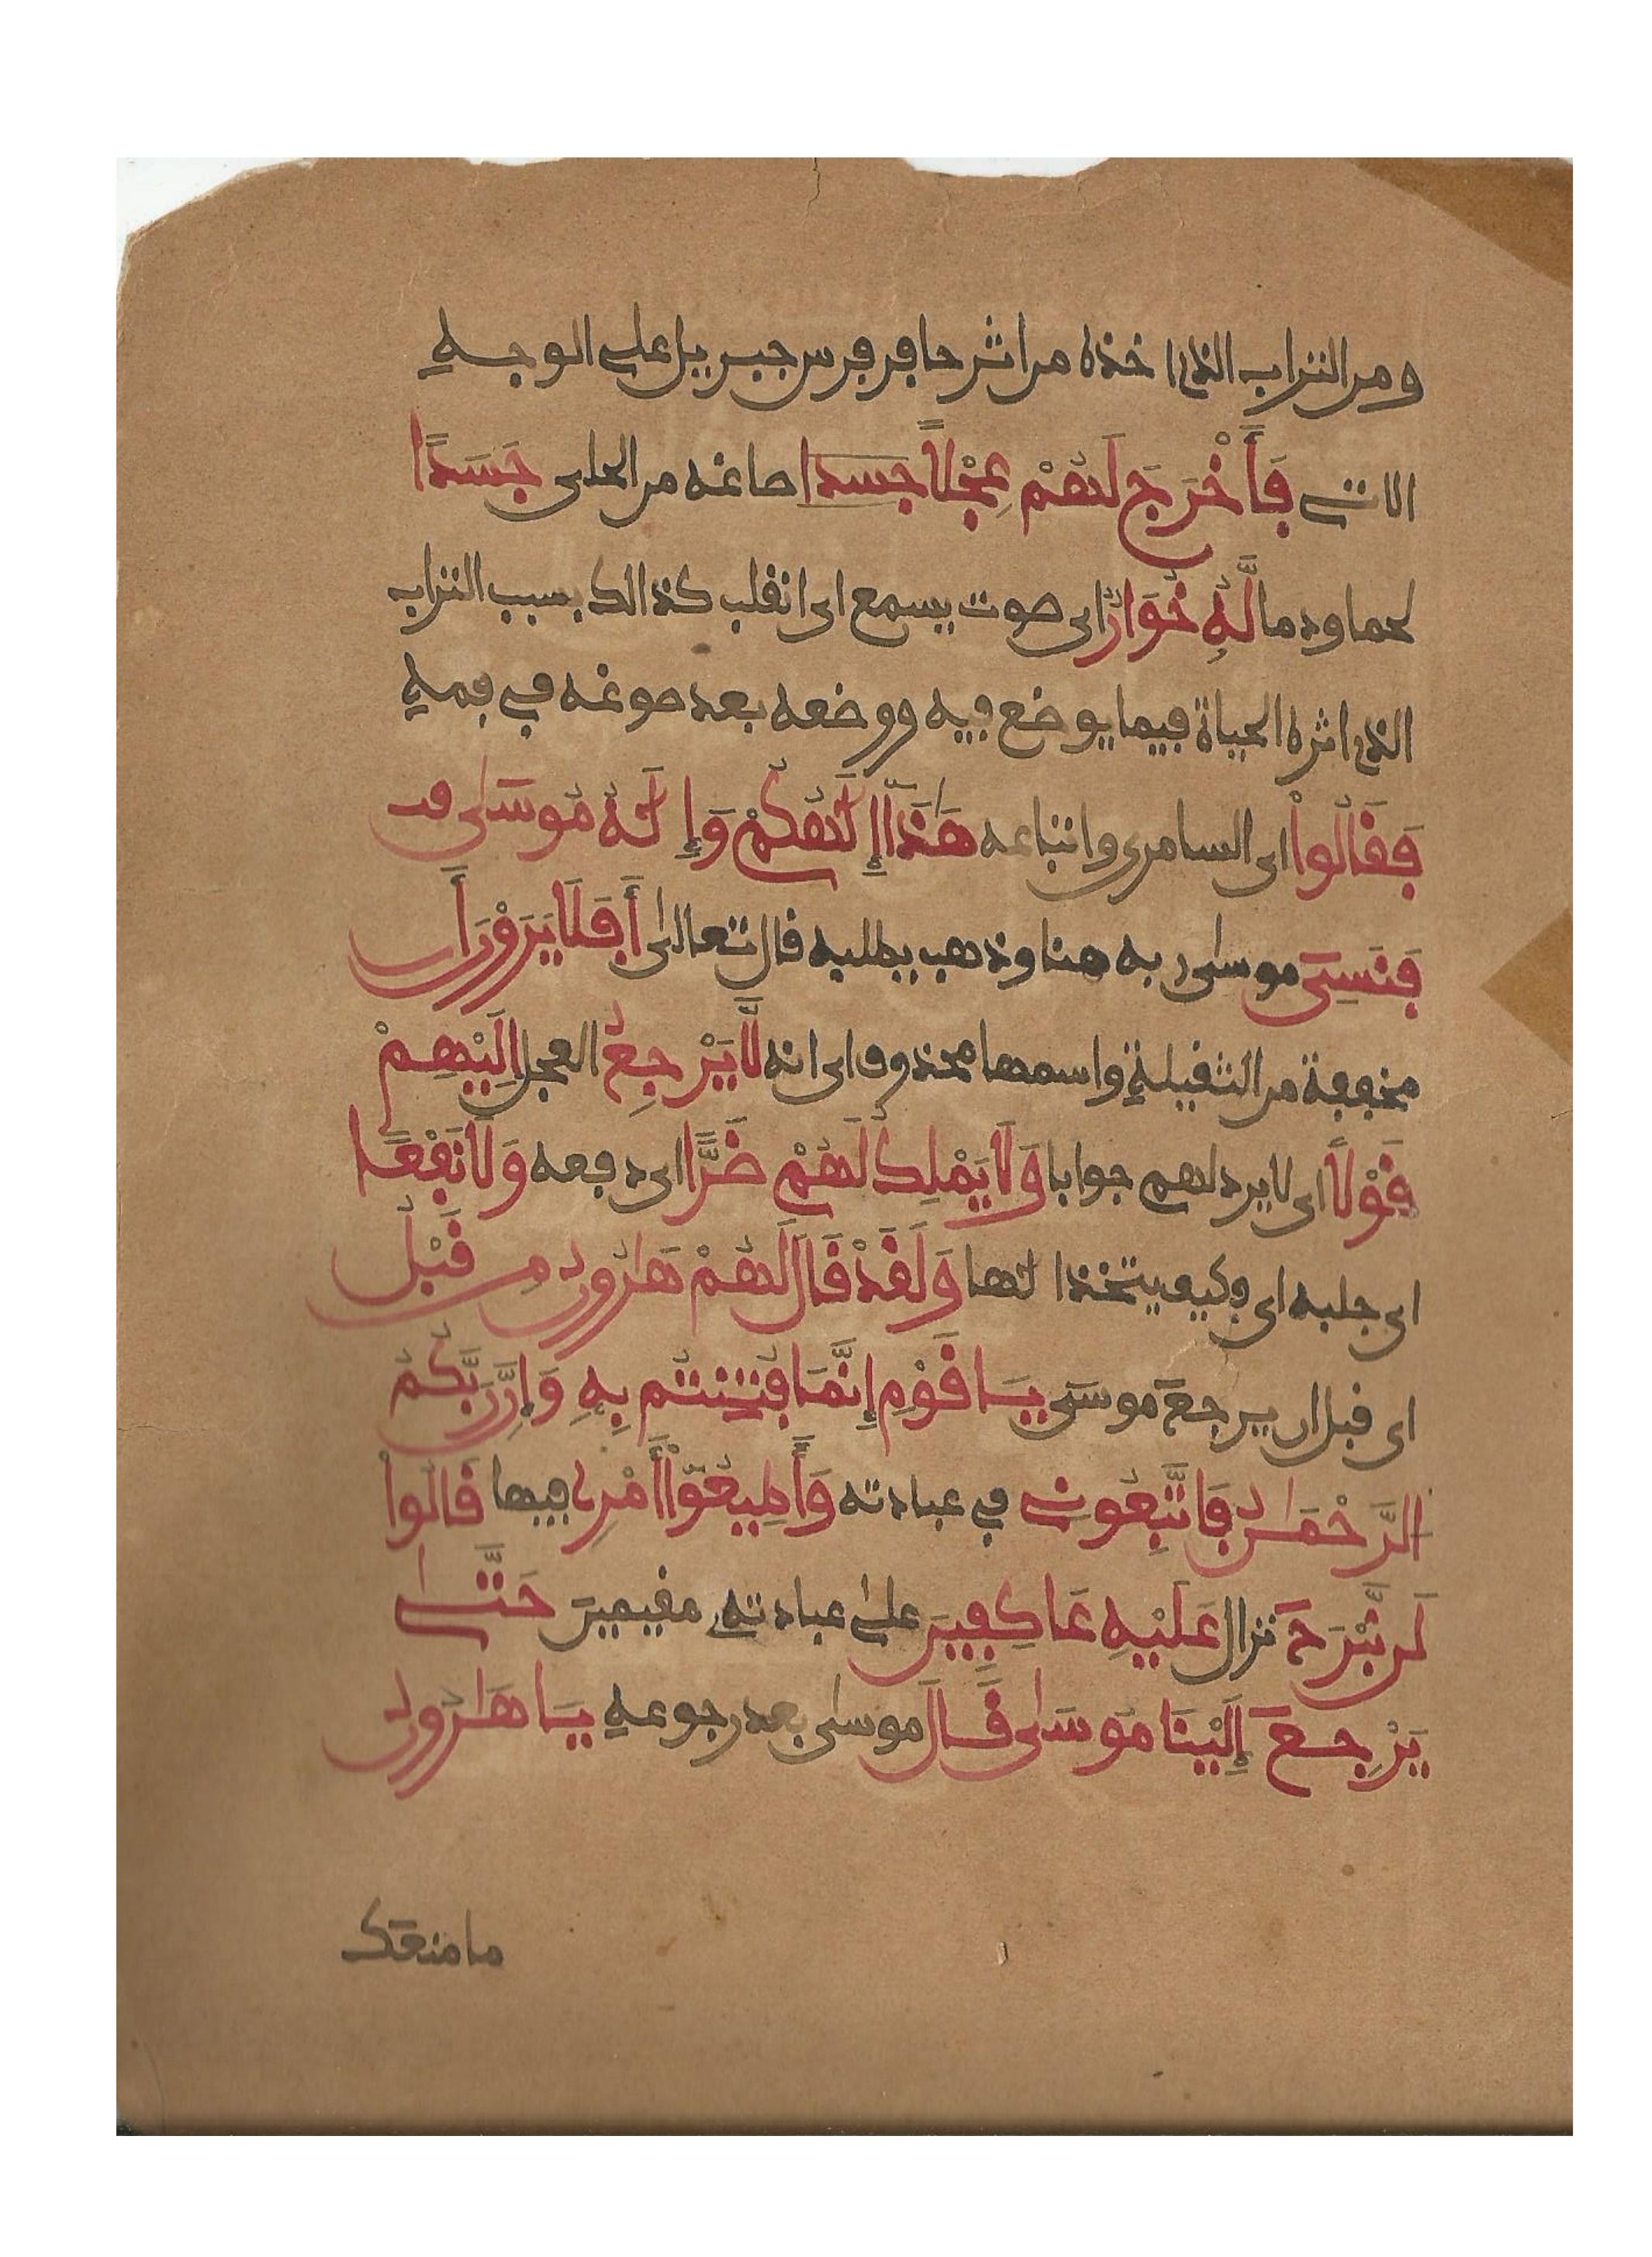 ومن التراب الذي اخذه من اثر حافر فرس جبريل على الوجه
الاتي فَأَخْرَجَ لَهُمْ عِجْلًا جسدا صاغه من الحلي جَسَدًا
لحما ودما لَّهُ خُوَارٌ اي صوت يسمع اي انقلب كذالك بسبب التراب
الذي اثره الحياة فيما يوضع فيه ووضعه بعد صوغه في فمه
فَقَالُواْ اي السامري واتباعه هَٰذَآ إِلَٰهُكُمْ وَإِلَٰهُ مُوسَىٰ
فَنَسِيَ موسىٰ ربه هنا وذهب يطلبه قال تعالىٰ أَفَلَا يَرَوْنَ أَن
مخففة من الثقيلة واسمها محذوف اي انه لَّا يَرْجِعُ العجل إِلَيْهِمْ
قَوْلًا اي لا يرد لهم جوابا وَلَا يَمْلِكُ لَهُمْ ضَرًّا اي دفعه وَلَا نَفْعًا
اي جلبه اي وكيف يتخذ الٰها وَلَقَدْ قَالَ لَهُمْ هَٰرُونُ مِن قَبْلُ
اي قبل ان يرجعَ موسَى يَا قَوْمِ إِنَّمَا فُتِنتُم بِهِ وَإِنَّ رَبَّكُمُ
الرَّحْمَٰنُ فَاتَّبِعُونِي في عبادته وَأَطِيعُوٓاْ أَمْرِي فيها قَالُواْ
لَن نَّبْرَحَ نزال عَلَيْهِ عَاكِفِينَ علىٰ عبادته مقيمين حَتَّىٰ
يَرْجِعَ إِلَيْنَا مُوسَىٰ قَالَ موسىٰ بعد رجوعه يَا هَٰرُونُ
ما منعك